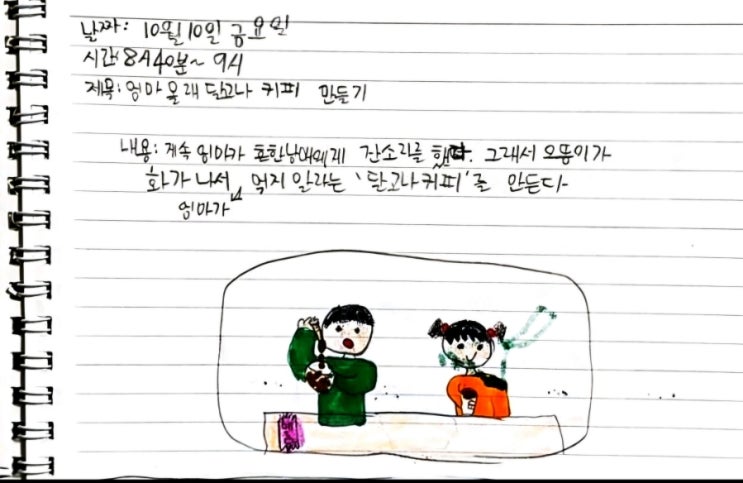 날짜: 10월 10일 금요일
시간: 8시 40분~ 9시
제목: 엄마 몰래 달고나 커피 만들기
내용: 계속 엄마가 흔한남매에게 잔소리를 했다. 그래서 으뜸이가
화가 나서 먹지 말라는 '달고나 커피'를 만든다
엄마가